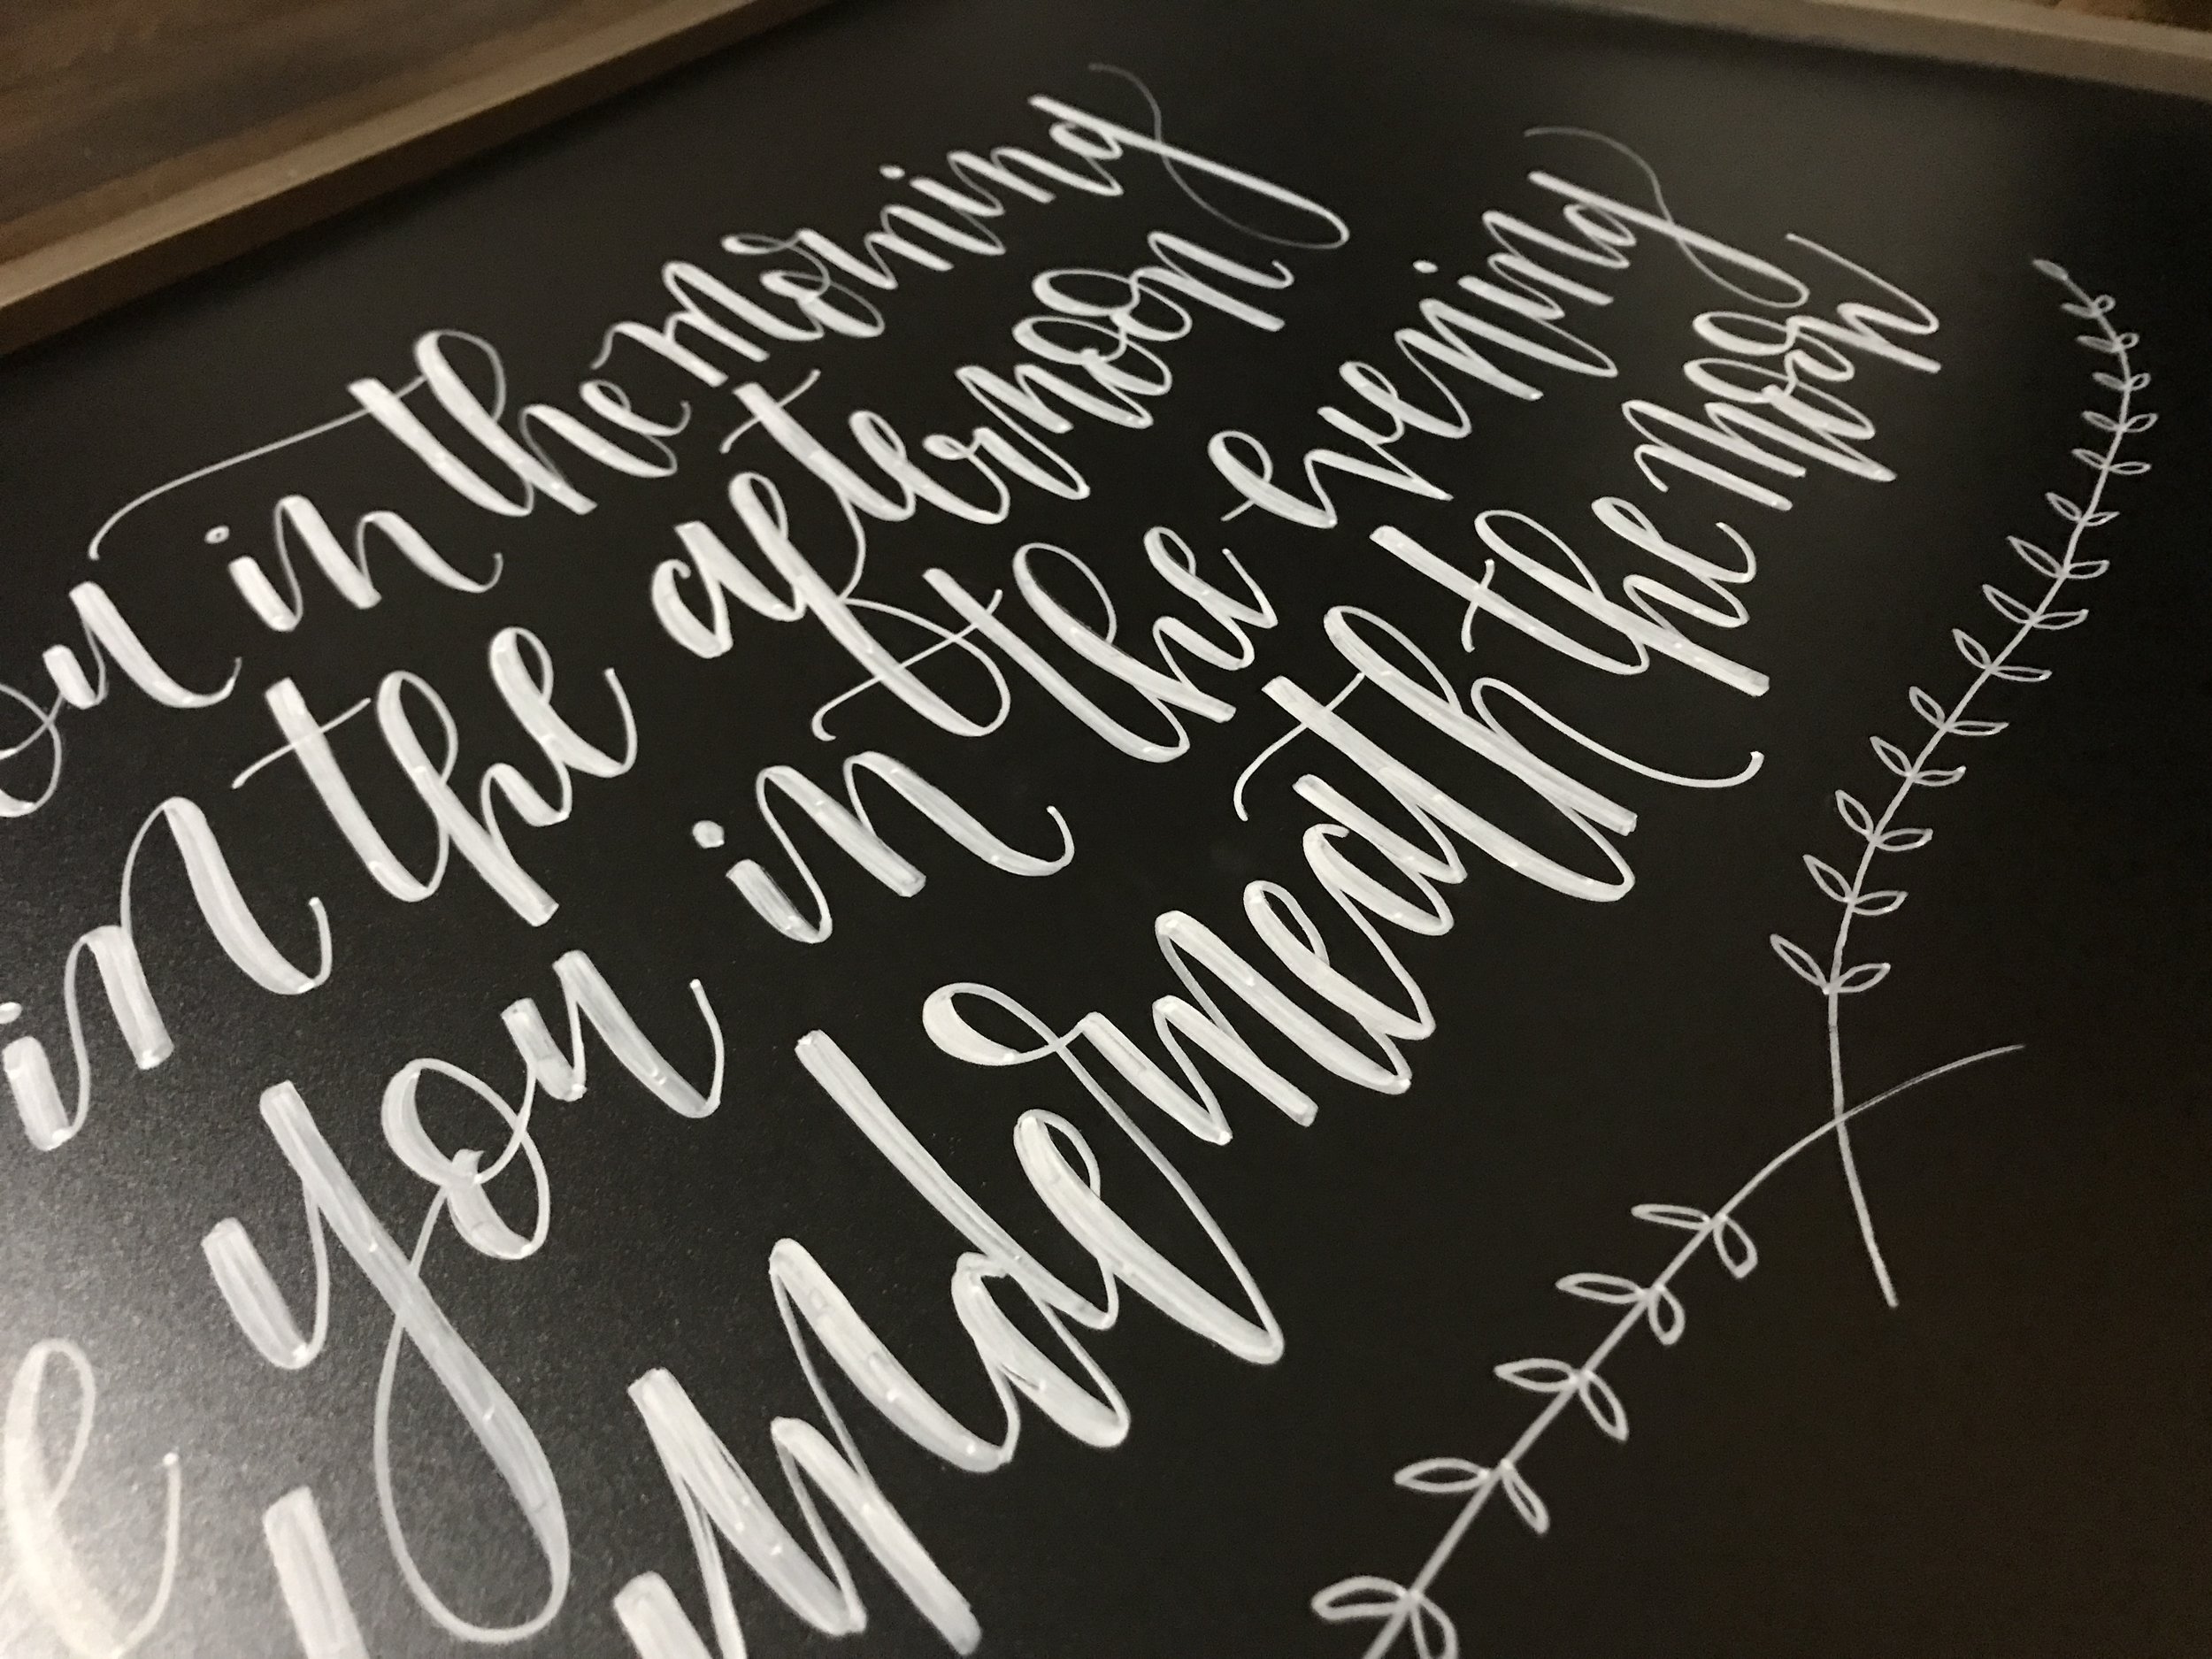 ou in the morning
in the afternoon
e you in the evening
underneath the moon